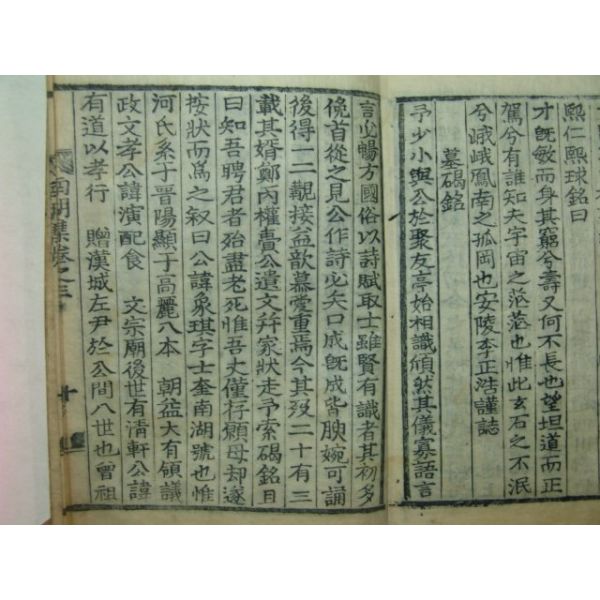 熙仁熙球銘曰
才旣敏而身其窮兮壽又何不長也望坦道而正
駕兮有誰知夫宇宙之茫茫也惟此玄石之不泯
兮峨峨鳳南之孤岡也安陵李正浩謹誌
墓碣銘
予少小與公於聚友亭始相識頎然其儀寡語言
言必暢方國俗以詩賦取士雖賢有識者其初多
俛首從之見公作詩必矢口成旣成皆腴婉可誦
後得一二觀接益歆慕愛重焉今其歿二十有三
載其婿鄭內權賷公遺文幷家狀走予索碣銘目
曰知吾聘君者殆盡老死惟吾丈僅存願母却遂
按狀而爲之叙曰公諱象琪字士奎南湖號也惟
河氏系于晋陽顯于高麗入本 朝益大有領議
政文孝公諱演配食 文宗廟後世有淸軒公諱
有道以孝行 贈漢城左尹於公間八世也曾祖
南湖集卷之三